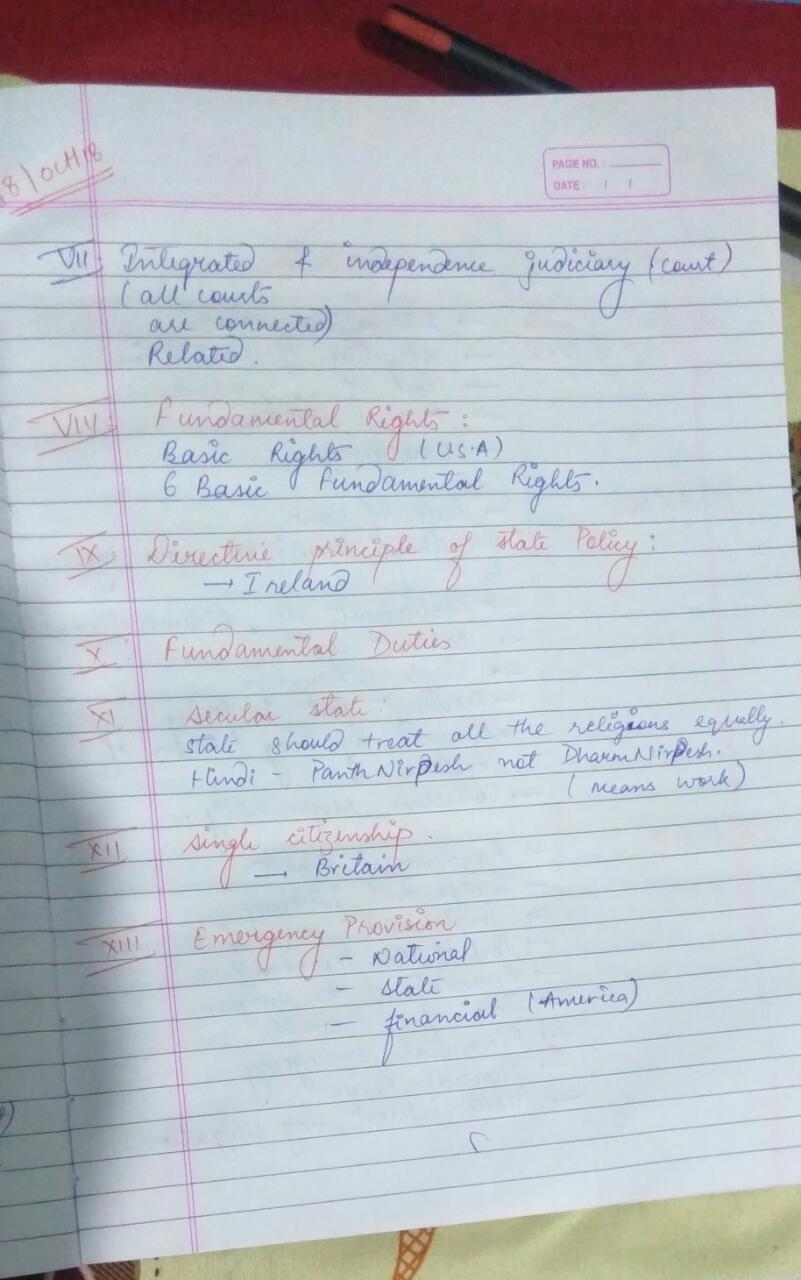 8/Oct/18
PAGE NO. :
DATE : / /
VII: Integrated & independence judiciary (court)
(all courts
are connected)
Related.
VIII: Fundamental Rights :
Basic Rights (U.S.A)
6 Basic Fundamental Rights.
IX: Directive principle of state Policy :
→ Ireland
X: Fundamental Duties
XI secular state :
state should treat all the religions equally.
Hindi - PanthNirpesh not DharmNirpesh.
(means work)
XII single citizenship.
→ Britain
XIII Emergency Provision
- National
- state
- financial (America)